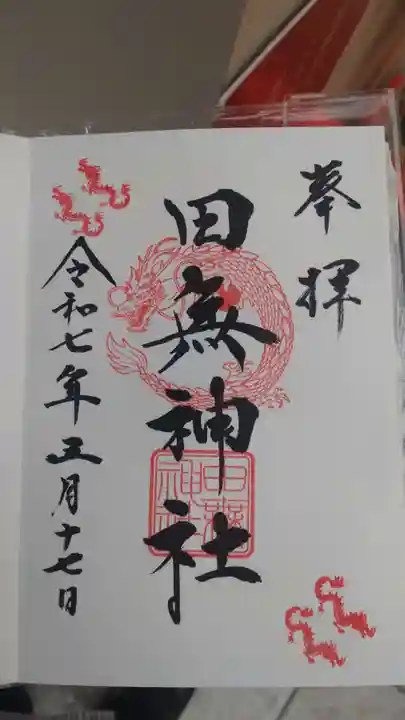 奉拝
田無神社
令和七年五月十七日
田無神社